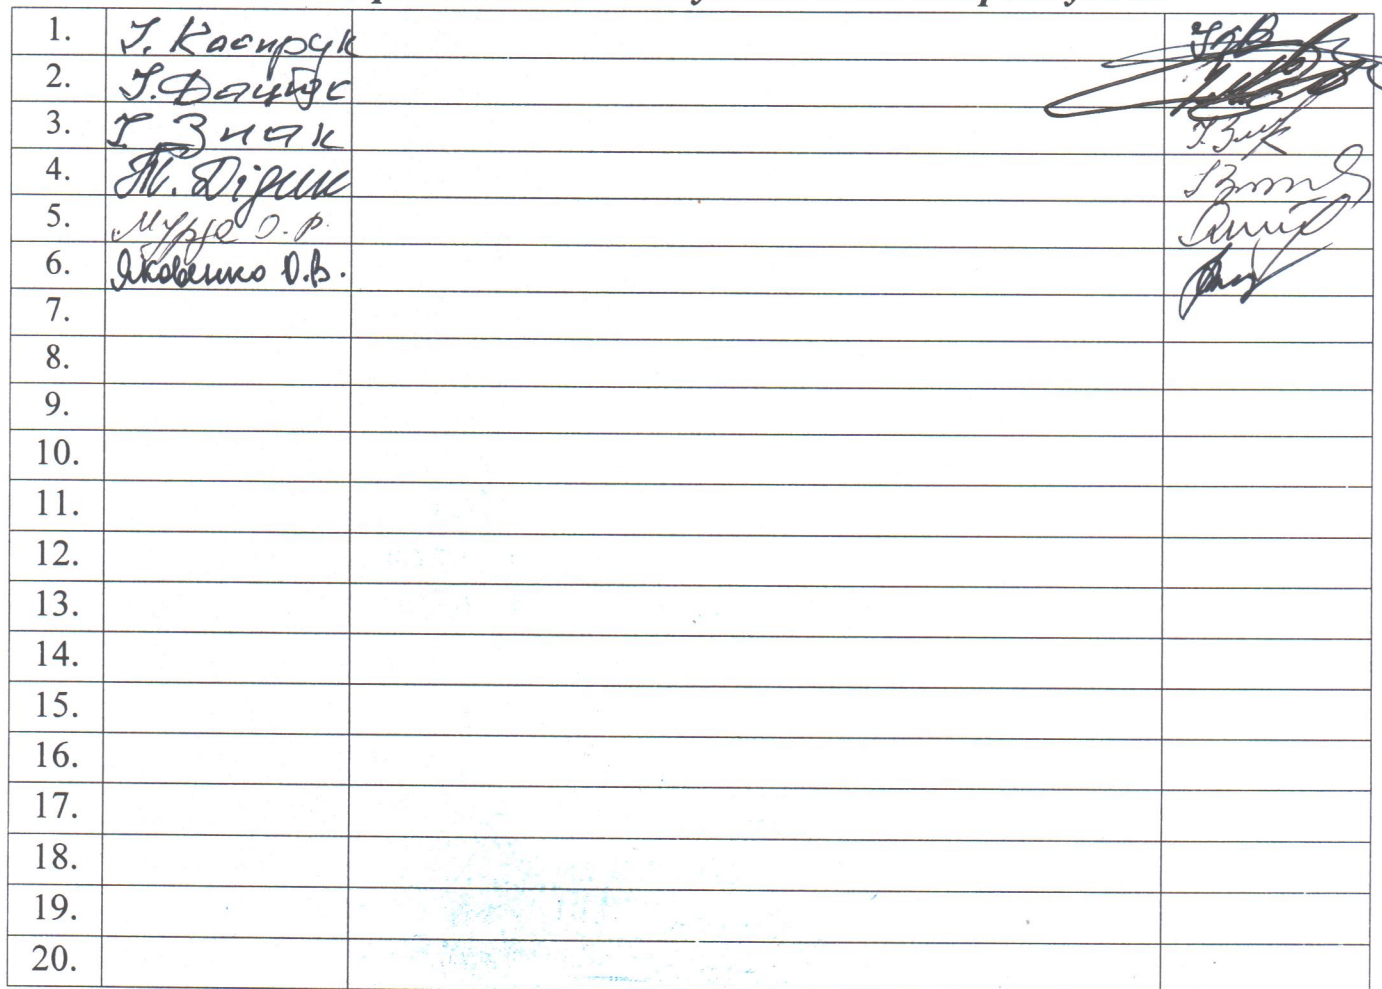 1. І. Каспрук
2. І. Дацюк
3. І. Знак
4. Т. Дідик
5. О. Р.
6. Яковенко О.В.
7.
8.
9.
10.
11.
12.
13.
14.
15.
16.
17.
18.
19.
20.